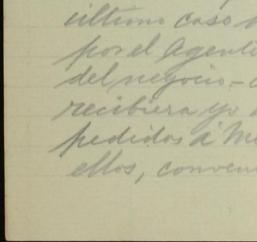 último caso
por el Agent
del negocio.-
recibiera yo
pedidos á M
ellos, conven